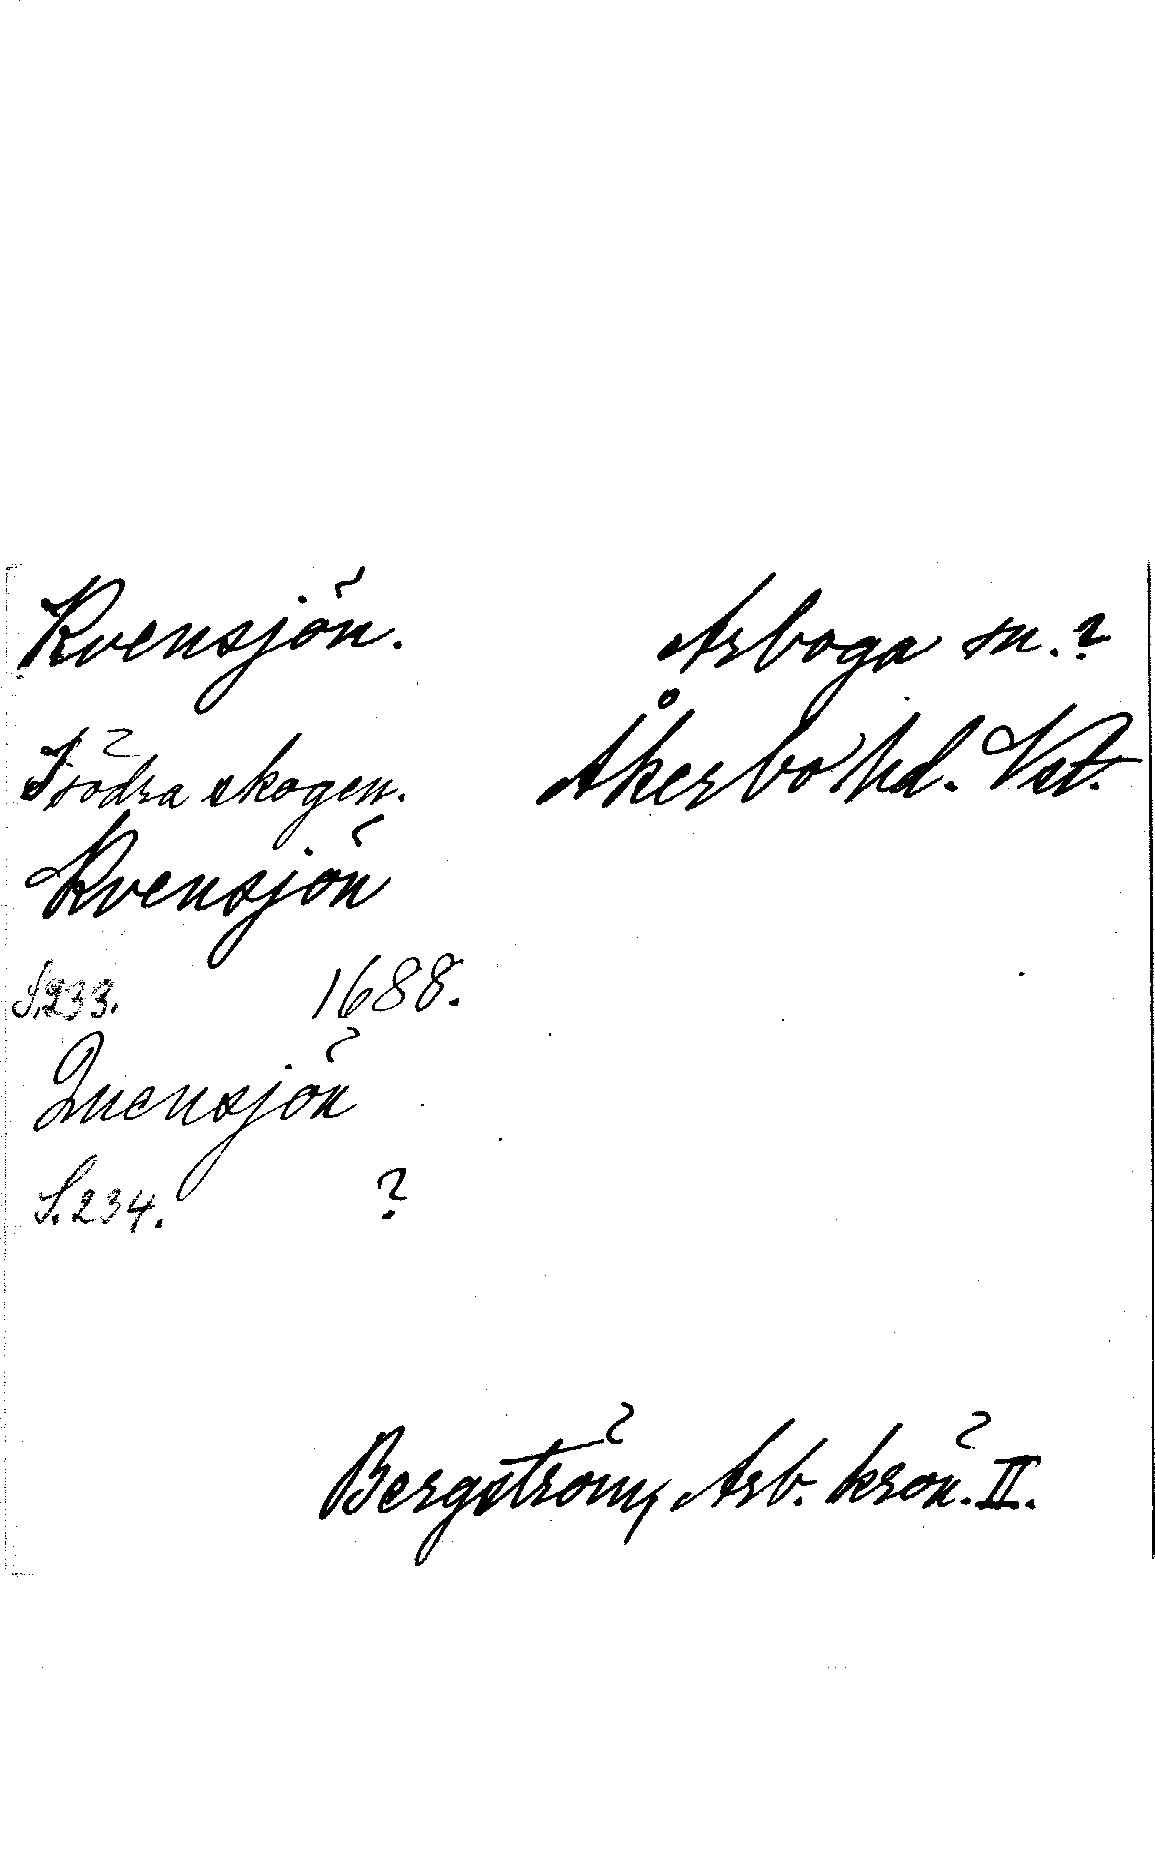 Kvensjön. Arboga sn.?
I södra skogen. Åkerbo hd. Vstm.
Kvensjön
S.233. 1688.
Quensjön
S.234. ?
Bergström, Arb. krön. II.